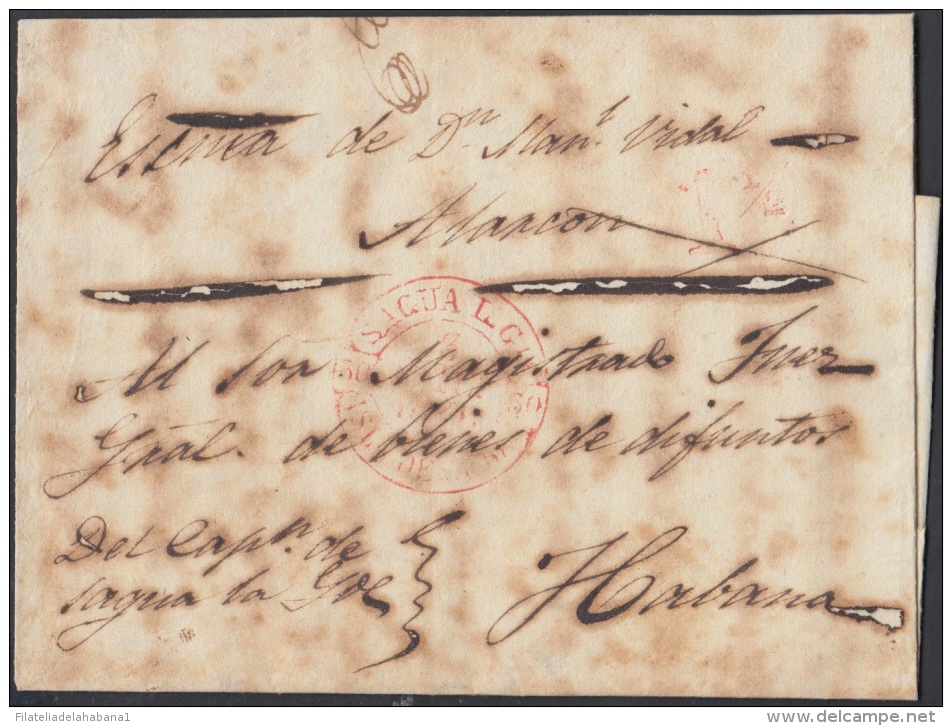 de Dn. Manl. Vidal
Alarcon
SAGUA L. G.
Al Sor Magistrado Juez
Gnál. de bienes de difuntos
Del Capn. de
sagua la Gde
Habana
Filateliadelahabana1
delcampe.net